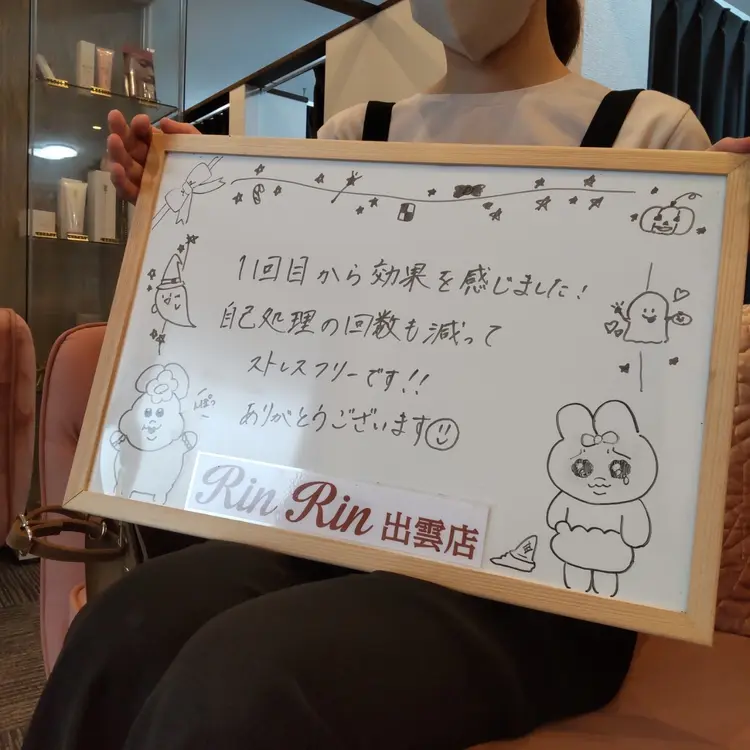 1回目から効果を感じました!
自己処理の回数も減って
ストレスフリーです!!
ありがとうございます
ぽっ
Rin Rin 出雲店